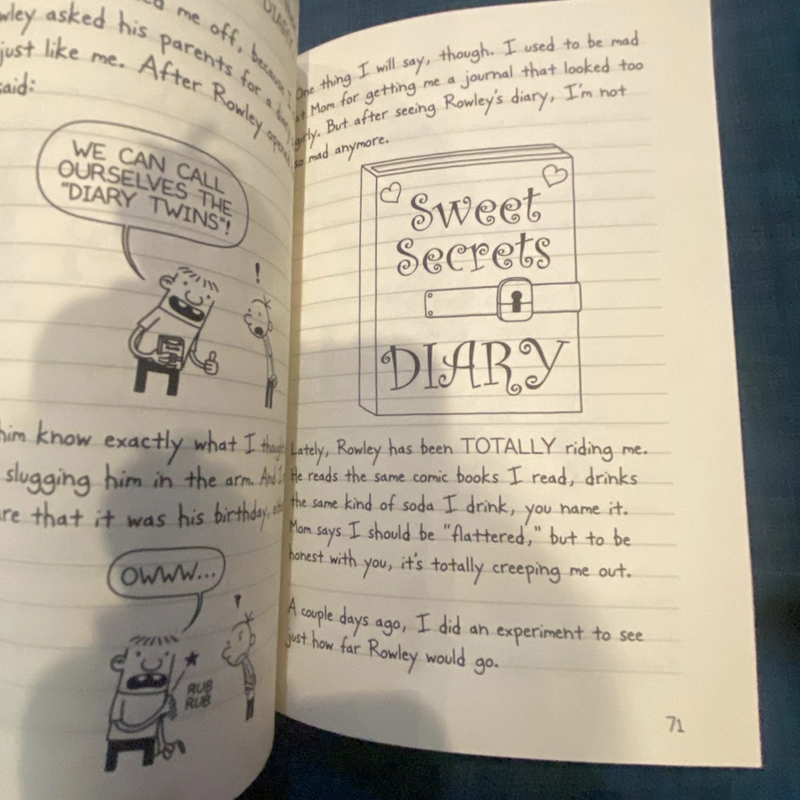 me off, because
wley asked his parents for a
just like me. After Rowley opened
said:
WE CAN CALL
OURSELVES THE
"DIARY TWINS"!
!
him know exactly what I
slugging him in the arm. And I
re that it was his birthday,
OWWW...
!
RUB
RUB
One thing I will say, though. I used to be mad
at Mom for getting me a journal that looked too
girly. But after seeing Rowley's diary, I'm not
so mad anymore.
Sweet
Secrets
DIARY
Lately, Rowley has been TOTALLY riding me.
He reads the same comic books I read, drinks
the same kind of soda I drink, you name it.
Mom says I should be "flattered," but to be
honest with you, it's totally creeping me out.
A couple days ago, I did an experiment to see
just how far Rowley would go.
71